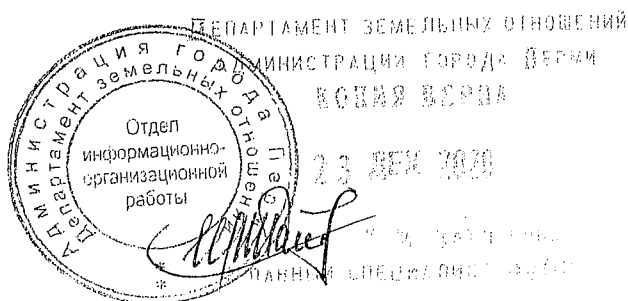 ДЕПАРТАМЕНТ ЗЕМЕЛЬНЫХ ОТНОШЕНИЙ
АДМИНИСТРАЦИИ ГОРОДА ПЕРМИ
КОПИЯ ВЕРНА
23 ДЕК 2020
Администрация города Пе
Департамент земельных отношений
Отдел
информационно-
организационной
работы
СПЕЦИАЛИСТ